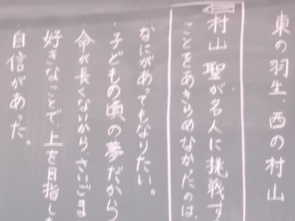 東の羽生、西の村山
村山 聖が名人に挑戦す
ことをあきらめなかったのは
なにがあってもなりたい。
子どもの頃の夢だから
命が長くないから、さいごま
好きなことで上を目指し
自信があった。